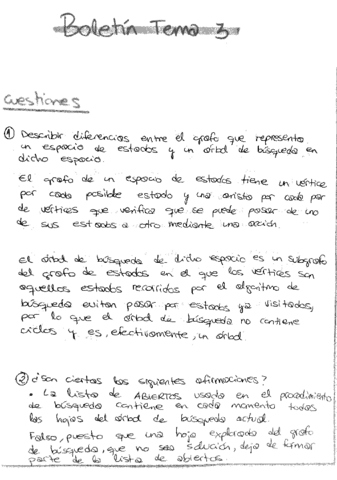 Boletín Tema 3
Cuestiones
① Describir diferencias entre el grafo que representa
un espacio de estados y un árbol de búsqueda en
dicho espacio.
El grafo de un espacio de estados tiene un vértice
por cada posible estado y una arista por cada par
de vértices que verifica que se puede pasar de uno
de sus estados a otro mediante una acción.
El árbol de búsqueda de dicho espacio es un subgrafo
del grafo de estados en el que los vértices son
aquellos estados recorridos por el algoritmo de
búsqueda evitan pasar por estados ya visitados,
por lo que el árbol de búsqueda no contiene
ciclos y es, efectivamente, un árbol.
② ¿Son ciertas las siguientes afirmaciones?
• La lista de ABIERTOS usada en el procedimiento
de búsqueda contiene en cada momento todas
las hojas del árbol de búsqueda actual.
Falso, puesto que una hoja explorada del grafo
de búsqueda, que no sea solución, deja de formar
parte de la lista de abiertos.